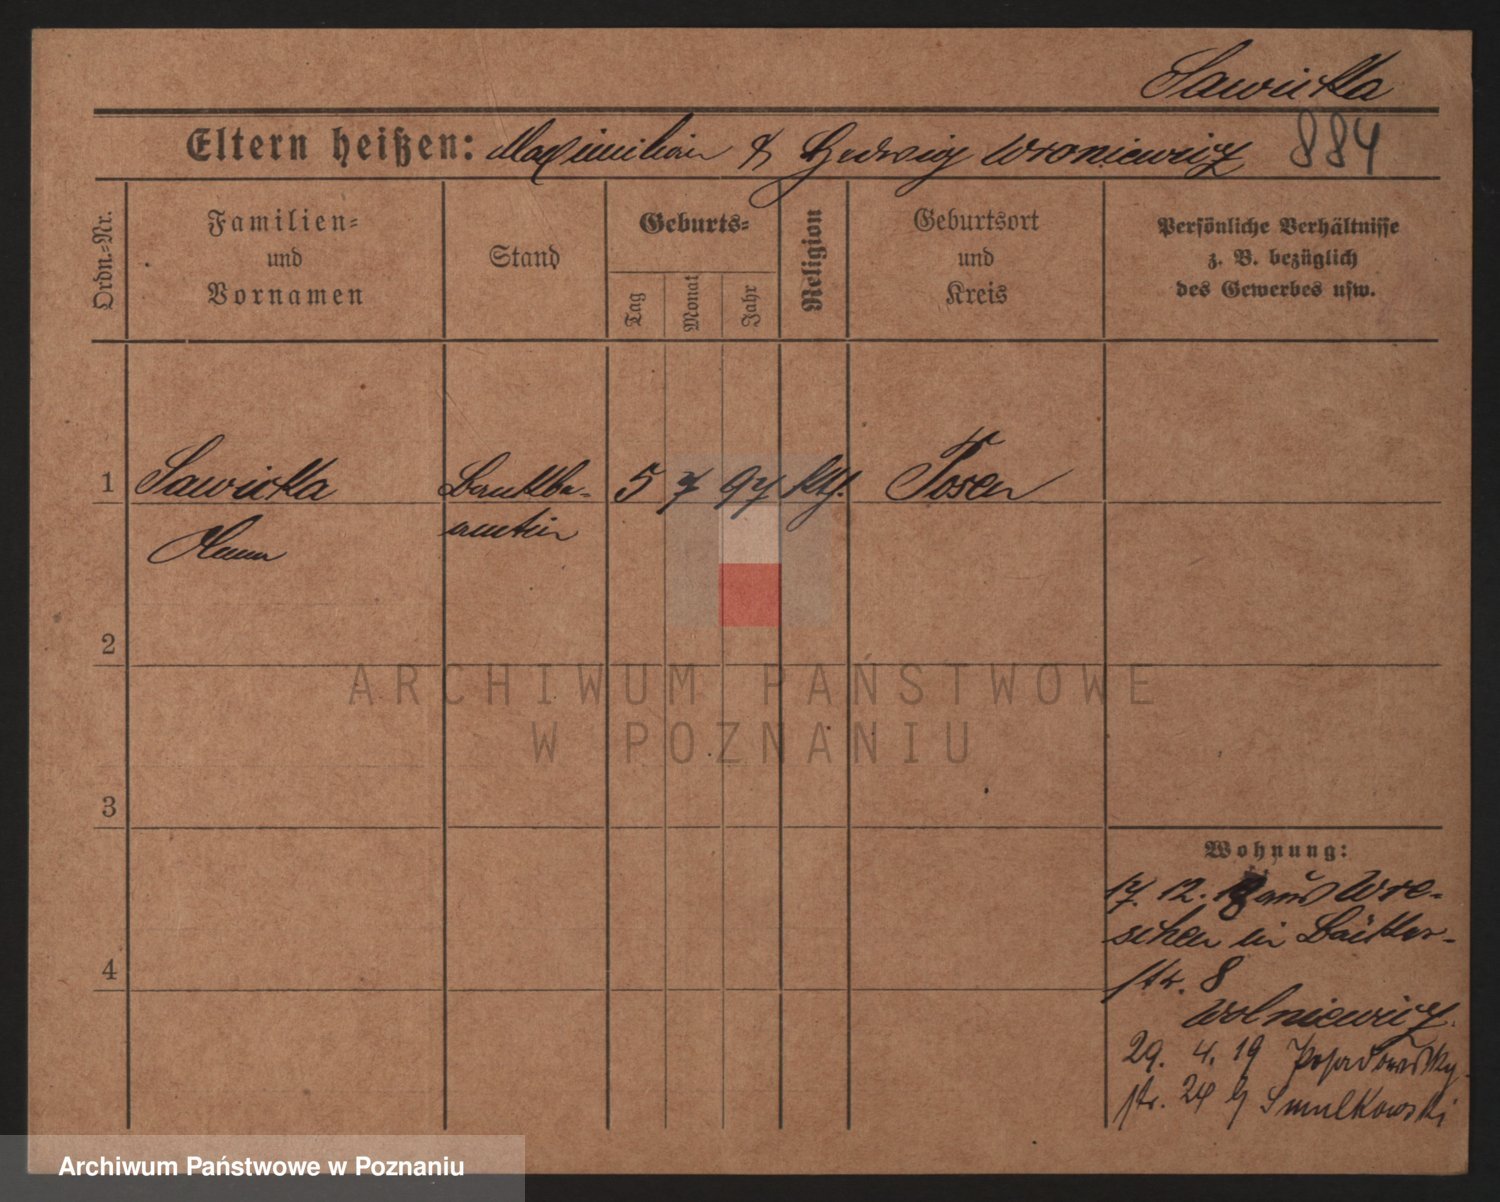 Sawicka
Eltern heißen: Maximilian & Hedwig Wroniewicz 884
Ordn.-Nr.
Familien-
und
Vornamen
Stand
Geburts-
Tag
Monat
Jahr
Religion
Geburtsort
und
Kreis
Persönliche Verhältnisse
z. B. bezüglich
des Gewerbes usw.
1 Sawicka Bankbe- 5 7 97 kth. Posen
amtin
2
3
4
Wohnung:
17. 12. 18 aus Wre-
schen in Bäcker-
str. 8
Wolniewicz.
29. 4. 19 Posadowsky-
str. 24 b/ Smulkowski
ARCHIWUM PAŃSTWOWE
W POZNANIU
Archiwum Państwowe w Poznaniu